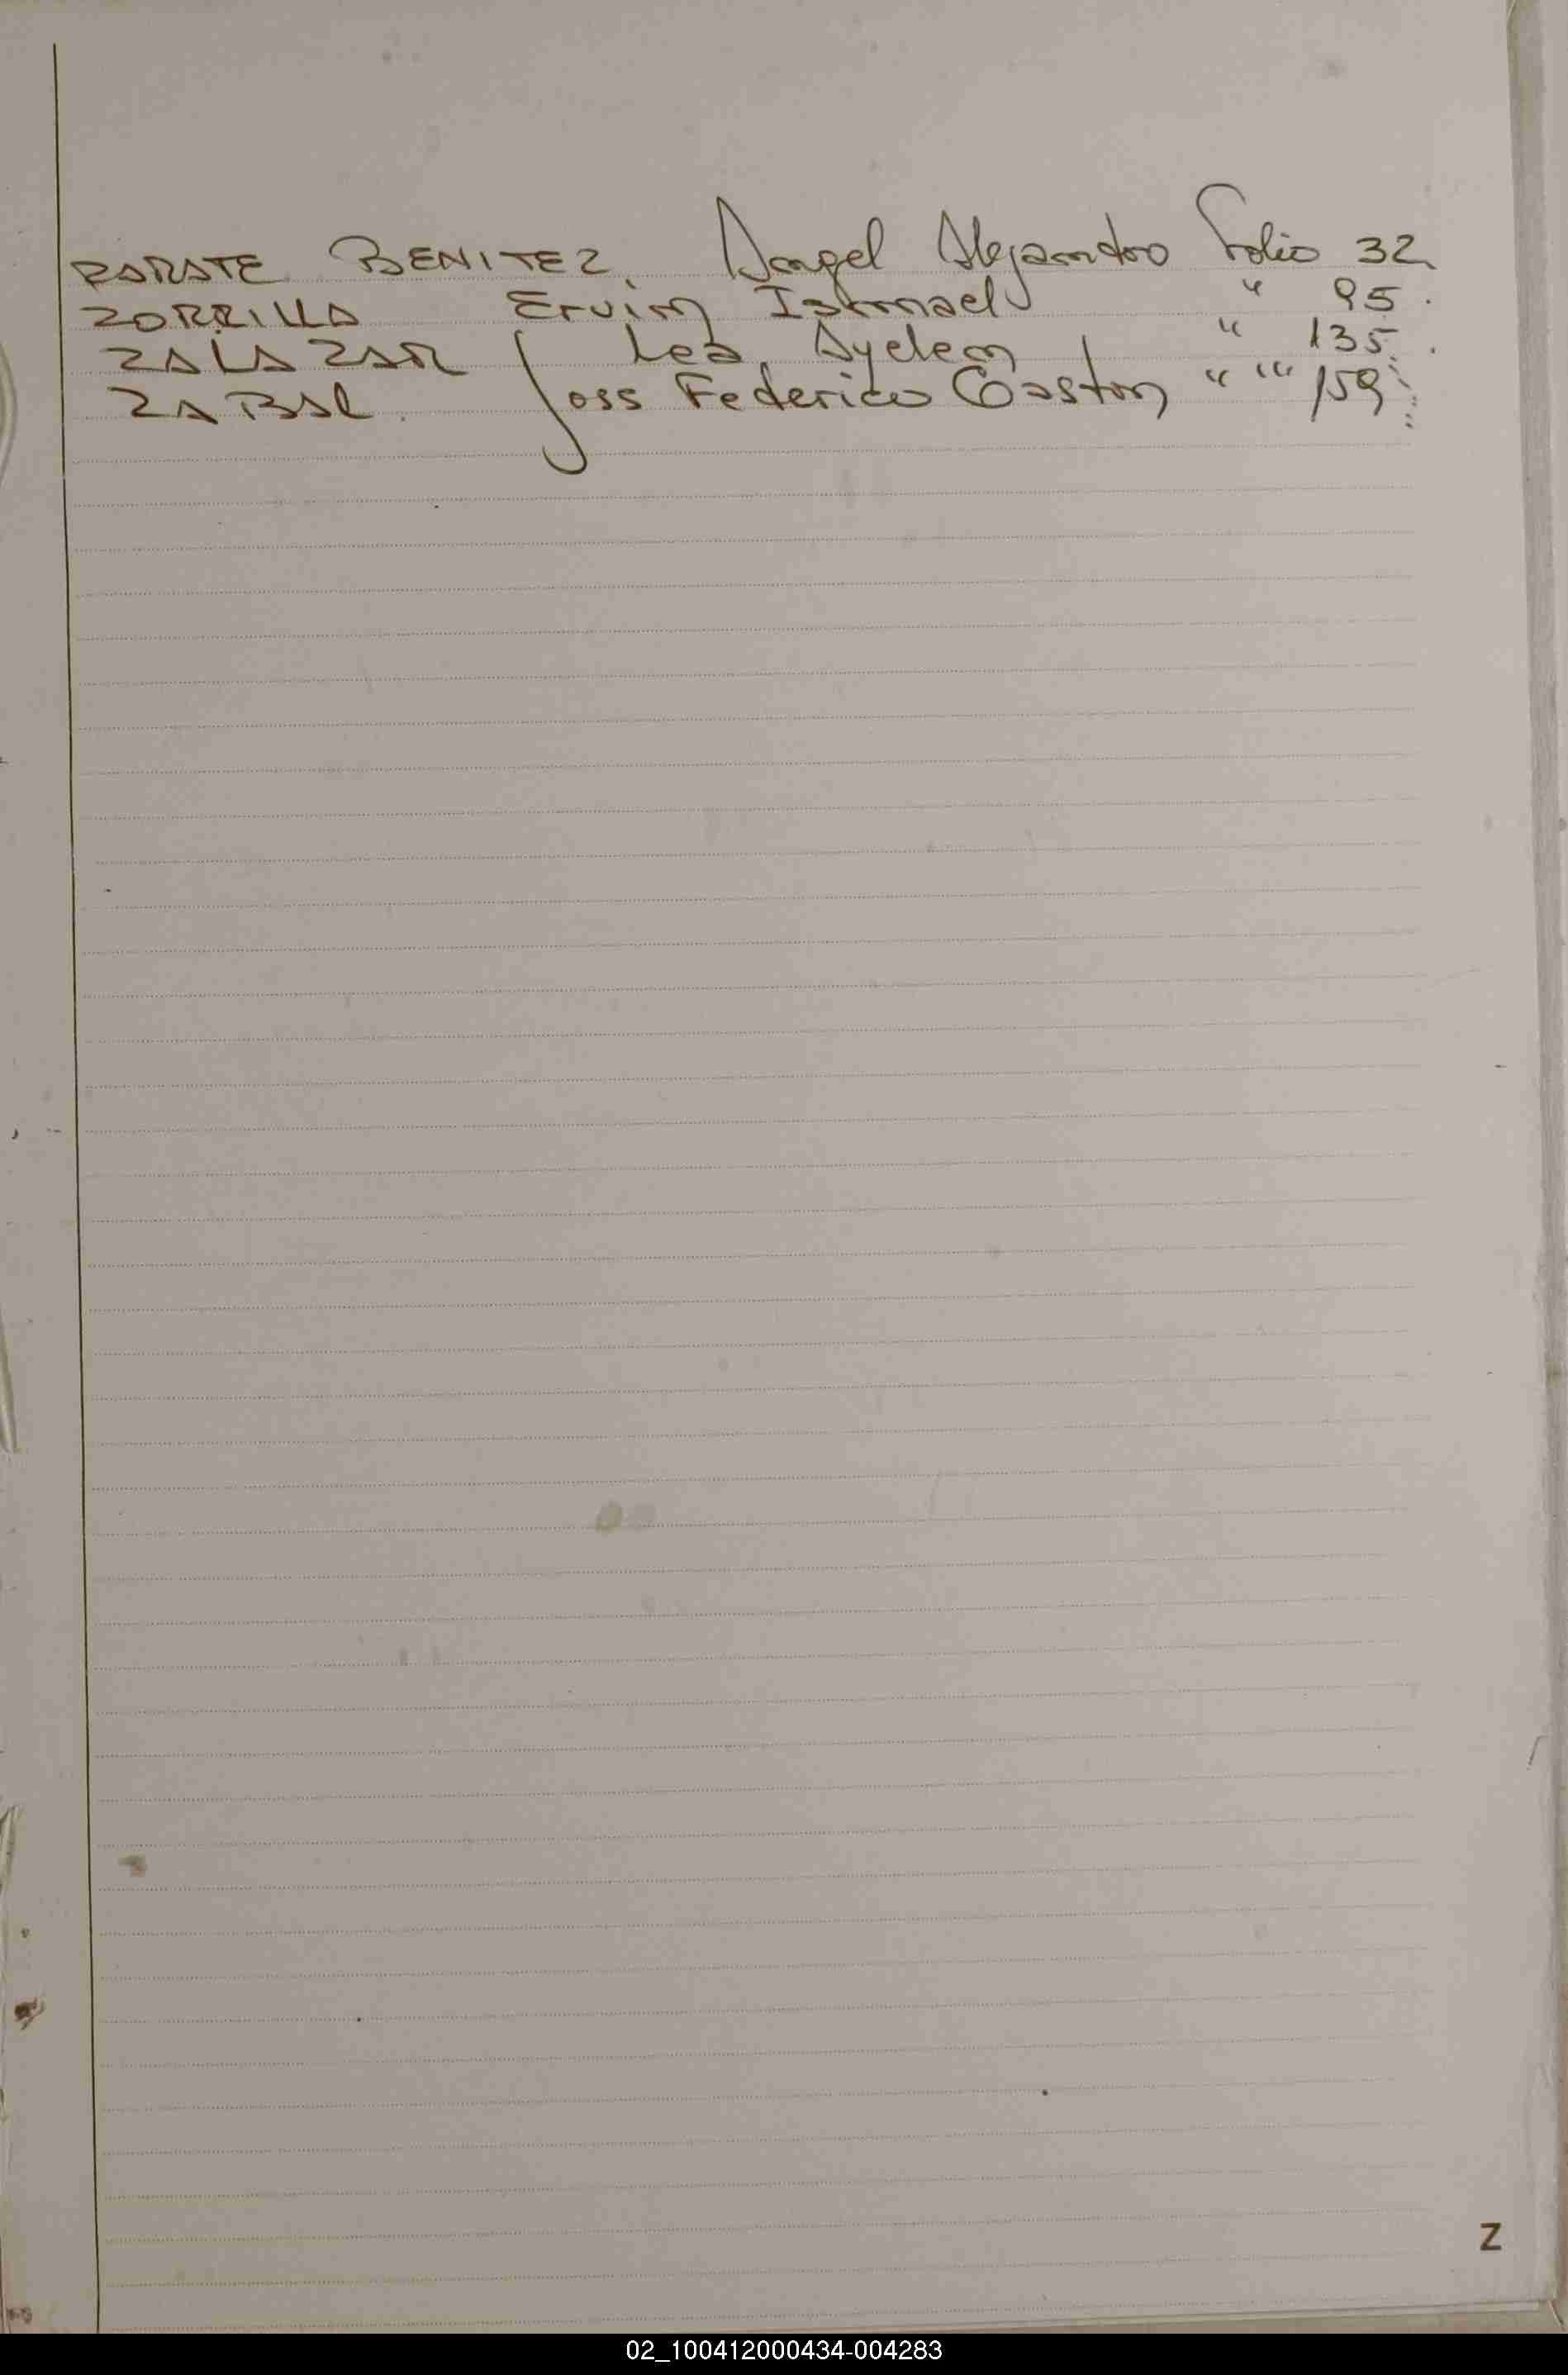 ZARATE BENITEZ. Angel Alejandro Folio 32
ZORRILLA Ervin Ismael " 95.
ZALAZAR Lea Ayelen " 135.
ZABAL. Jose Federico Gaston " "" 159
Z
02_100412000434-004283